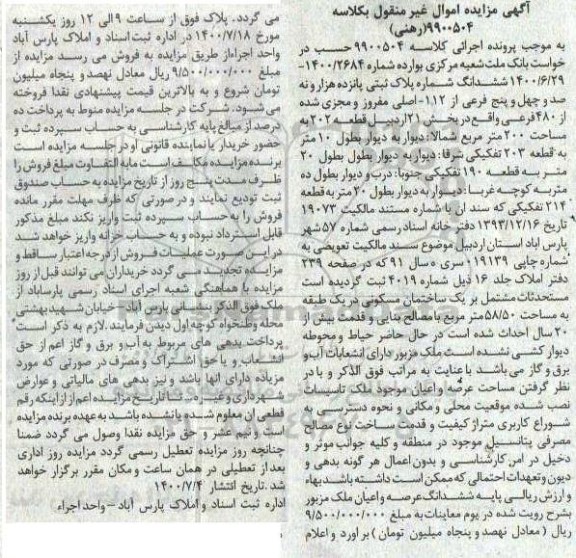 آگهی مزایده اموال غیر منقول بکلاسه
۹۹۰۰۵۰۴(رهنی)
به موجب پرونده اجرائی کلاسه ۹۹۰۰۵۰۴ حسب در
خواست بانک ملت شعبه مرکزی بوارده شماره ۱۴۰۰/۲۶۸۴-
۱۴۰۰/۶/۲۹ ششدانگ شماره پلاک ثبتی پانزده هزار و نه
صد و چهل و پنج فرعی از ۱۱۲-اصلی مفروز و مجزی شده
از ۴۸۰ فرعی واقع در بخش ۲۱ اردبیل قطعه ۲۰۲ به
مساحت ۲۰۰ متر مربع شمالا: دیوار به دیوار بطول ۱۰ متر
به قطعه ۲۰۳ تفکیکی شرقا: دیوار به دیوار بطول بطول ۲۰
متر به قطعه ۱۹۰ تفکیکی جنوبا: درب و دیوار بطول ده
متر به کوچه غربا: دیوار به دیوار بطول ۲۰ متر به قطعه
۲۱۴ تفکیکی که سند آن با شماره مستند مالکیت ۱۹۰۷۳
تاریخ ۱۳۹۳/۱۲/۱۶ دفتر خانه اسناد رسمی شماره ۵۷ شهر
پارس اباد استان اردبیل موضوع سند مالکیت تعویضی به
شماره چاپی ۰۱۹۱۳۹ سری ه سال ۹۱ که در صفحه ۲۳۹
دفتر املاک جلد ۱۶ ذیل شماره ۴۰۱۹ ثبت گردیده است
مستحدثات مشتمل بر یک ساختمان مسکونی در یک طبقه
به مساحت ۵۸/۵۰ متر مربع با مصالح بنایی و قدمت بیش از
۲۰ سال احداث شده است در حال حاضر حیاط و محوطه
دیوار کشی نشده است ملک مزبور دارای انشعابات آب و
برق و گاز می باشد با عنایت به مراتب فوق الذکر و با در
نظر گرفتن مساحت عرصه و اعیان موجود ملک تاسیسات
نصب شده موقعیت محلی و مکانی و نحوه دسترسی به
شوراع کاربری متراژ کیفیت و قدمت ساخت نوع مصالح
مصرفی پتانسیل موجود در منطقه و کلیه جوانب موثر و
دخیل در امن کارشناسی و بدون اعمال هر گونه بدهی و
دیون و تعهدات احتمالی که ممکن است داشته باشد بهاء
و ارزش ریالی پایه ششدانگ عرصه و اعیان ملک مزبور
بشرح رویت شده در یوم معاینات به مبلغ ۹/۵۰۰/۰۰۰/۰۰۰
ریال (معادل نهصد و پنجاه میلیون تومان) بر اورد و اعلام
می گردد. پلاک فوق از ساعت ۹ الی ۱۲ روز یکشنبه
مورخ ۱۴۰۰/۷/۱۸ در اداره ثبت اسناد و املاک پارس آباد
واحد اجراء از طریق مزایده به فروش می رسد مزایده از
مبلغ ۹/۵۰۰/۰۰۰/۰۰۰ ریال معادل نهصد و پنجاه میلیون
تومان شروع و به بالاترین قیمت پیشنهادی نقدا فروخته
می شود. شرکت در جلسه مزایده منوط به پرداخت ده
درصد از مبالغ پایه کارشناسی به حساب سپرده ثبت و
حضور خریدار یا نماینده قانونی او در جلسه مزایده است
برنده مزایده مکلف است مابه التفاوت مبلغ فروش را
ظرف مدت پنج روز از تاریخ مزایده به حساب صندوق
ثبت تودیع نمایند و در صورتی که ظرف مهلت مقرر مانده
فروش را به حساب سپرده ثبت واریز نکند مبلغ مذکور
قابل استرداد نبوده و به حساب خزانه واریز خواهد شد
در این صورت عملیات فروش از درجه اعتبار ساقط و
مزایده تجدید می گردد خریداران می توانند قبل از روز
مزایده با هماهنگی شعبه اجرای اسناد رسمی پارساباد از
ملک فوق الذکر بنشانی پارس آباد- خیابان شهید بهشتی
محله وطنخواه کوچه اول دیدن فرمایند. لازم به ذکر است
پرداخت بدهی های مربوط به آب و برق و گاز اعم از حق
انشعاب و یا حق اشتراک و مصرف در صورتی که مورد
مزیاده دارای انها باشد و نیز بدهی های مالیاتی و عوارض
شهرداری و غیره تا تاریخ مزایده اعم از از اینکه رقم
قطعی آن معلوم شده یا نشده باشد به عهده برنده مزایده
است و نیم عشر و حق مزایده نقدا وصول می گردد ضمنا
چنانچه روز مزایده تعطیل رسمی گردد مزایده روز اداری
بعد از تعطیلی در همان ساعت و مکان مقرر برگزار خواهد
شد. تاریخ انتشار ۱۴۰۰/۷/۴
اداره ثبت اسناد و املاک پارس آباد -واحد اجراء